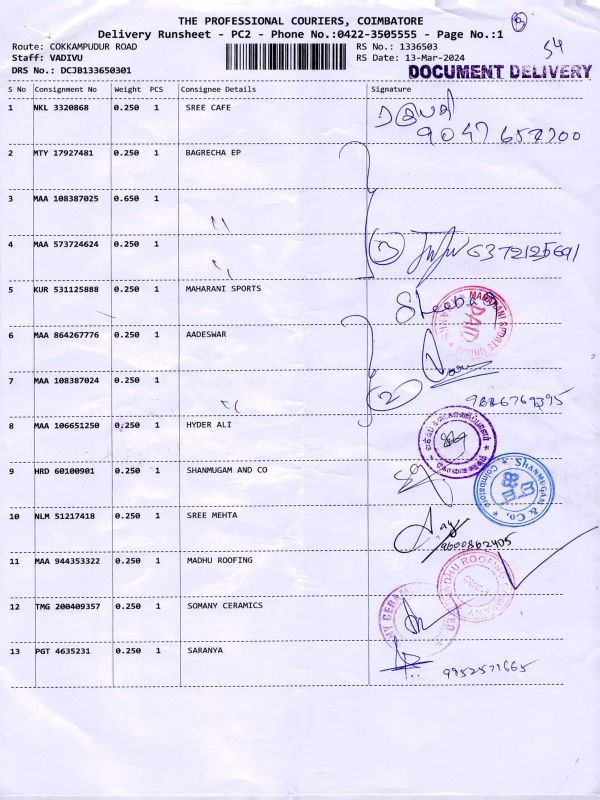 THE PROFESSIONAL COURIERS, COIMBATORE
Delivery Runsheet - PC2 - Phone No.:0422-3505555 - Page No.:1
Route: COKKAMPUDUR ROAD
Staff: VADIVU
DRS No.: DCJB133650301
RS No.: 1336503
RS Date: 13-Mar-2024
54
DOCUMENT DELIVERY
S No Consignment No Weight PCS Consignee Details Signature
1 NKL 3320868 0.250 1 SREE CAFE
2 MTY 17927481 0.250 1 BAGRECHA EP
3 MAA 108387025 0.650 1 ''
4 MAA 573724624 0.250 1 '' 3 6372125691
5 KUR 531125888 0.250 1 MAHARANI SPORTS Sheeba
MAHARANI SPORTS
PAID
6 MAA 864267776 0.250 1 AADESWAR
7 MAA 108387024 0.250 1 '' 2
8 MAA 106651250 0.250 1 HYDER ALI
9 HRD 60100901 0.250 1 SHANMUGAM AND CO
SHANMUGAN & Co, Coimbatore
10 NLM 51217418 0.250 1 SREE MEHTA 9600862405
11 MAA 944353322 0.250 1 MADHU ROOFING
MADHU ROOFING
12 TMG 200409357 0.250 1 SOMANY CERAMICS
13 PGT 4635231 0.250 1 SARANYA 9952571665